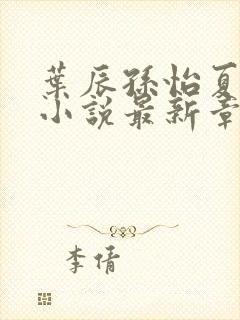 葉辰孫怡夏
小說最新章
李倩